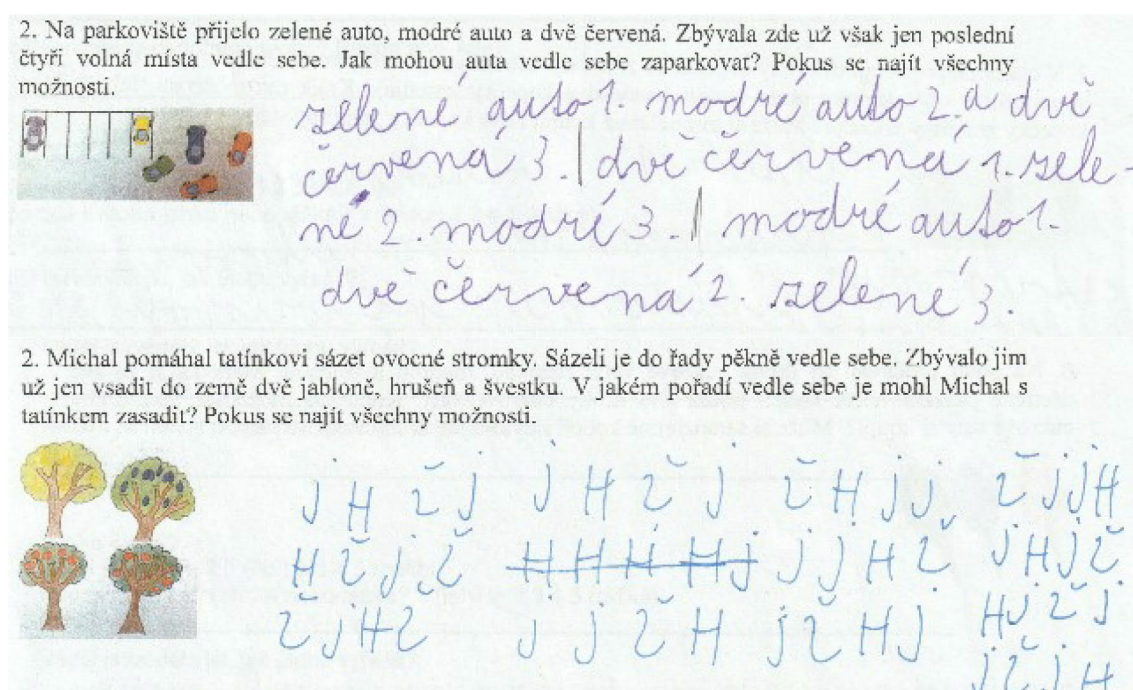 2. Na parkoviště přijelo zelené auto, modré auto a dvě červená. Zbývala zde už však jen poslední
čtyři volná místa vedle sebe. Jak mohou auta vedle sebe zaparkovat? Pokus se najít všechny
možnosti.
zelené auto 1. modré auto 2. a dvě
červená 3. | dvě červená 1. zele-
né 2. modré 3. | modré auto 1.
dvě červená 2. zelené 3.
2. Michal pomáhal tatínkovi sázet ovocné stromky. Sázeli je do řady pěkně vedle sebe. Zbývalo jim
už jen vsadit do země dvě jabloně, hrušeň a švestku. V jakém pořadí vedle sebe je mohl Michal s
tatínkem zasadit? Pokus se najít všechny možnosti.
J H Š J J H Š J Š H J J, Š J J H
H Š J Š H H H H J J J H Š J H J Š
Š J H Š J J Š H J Š H J H J Š J
J Š J H